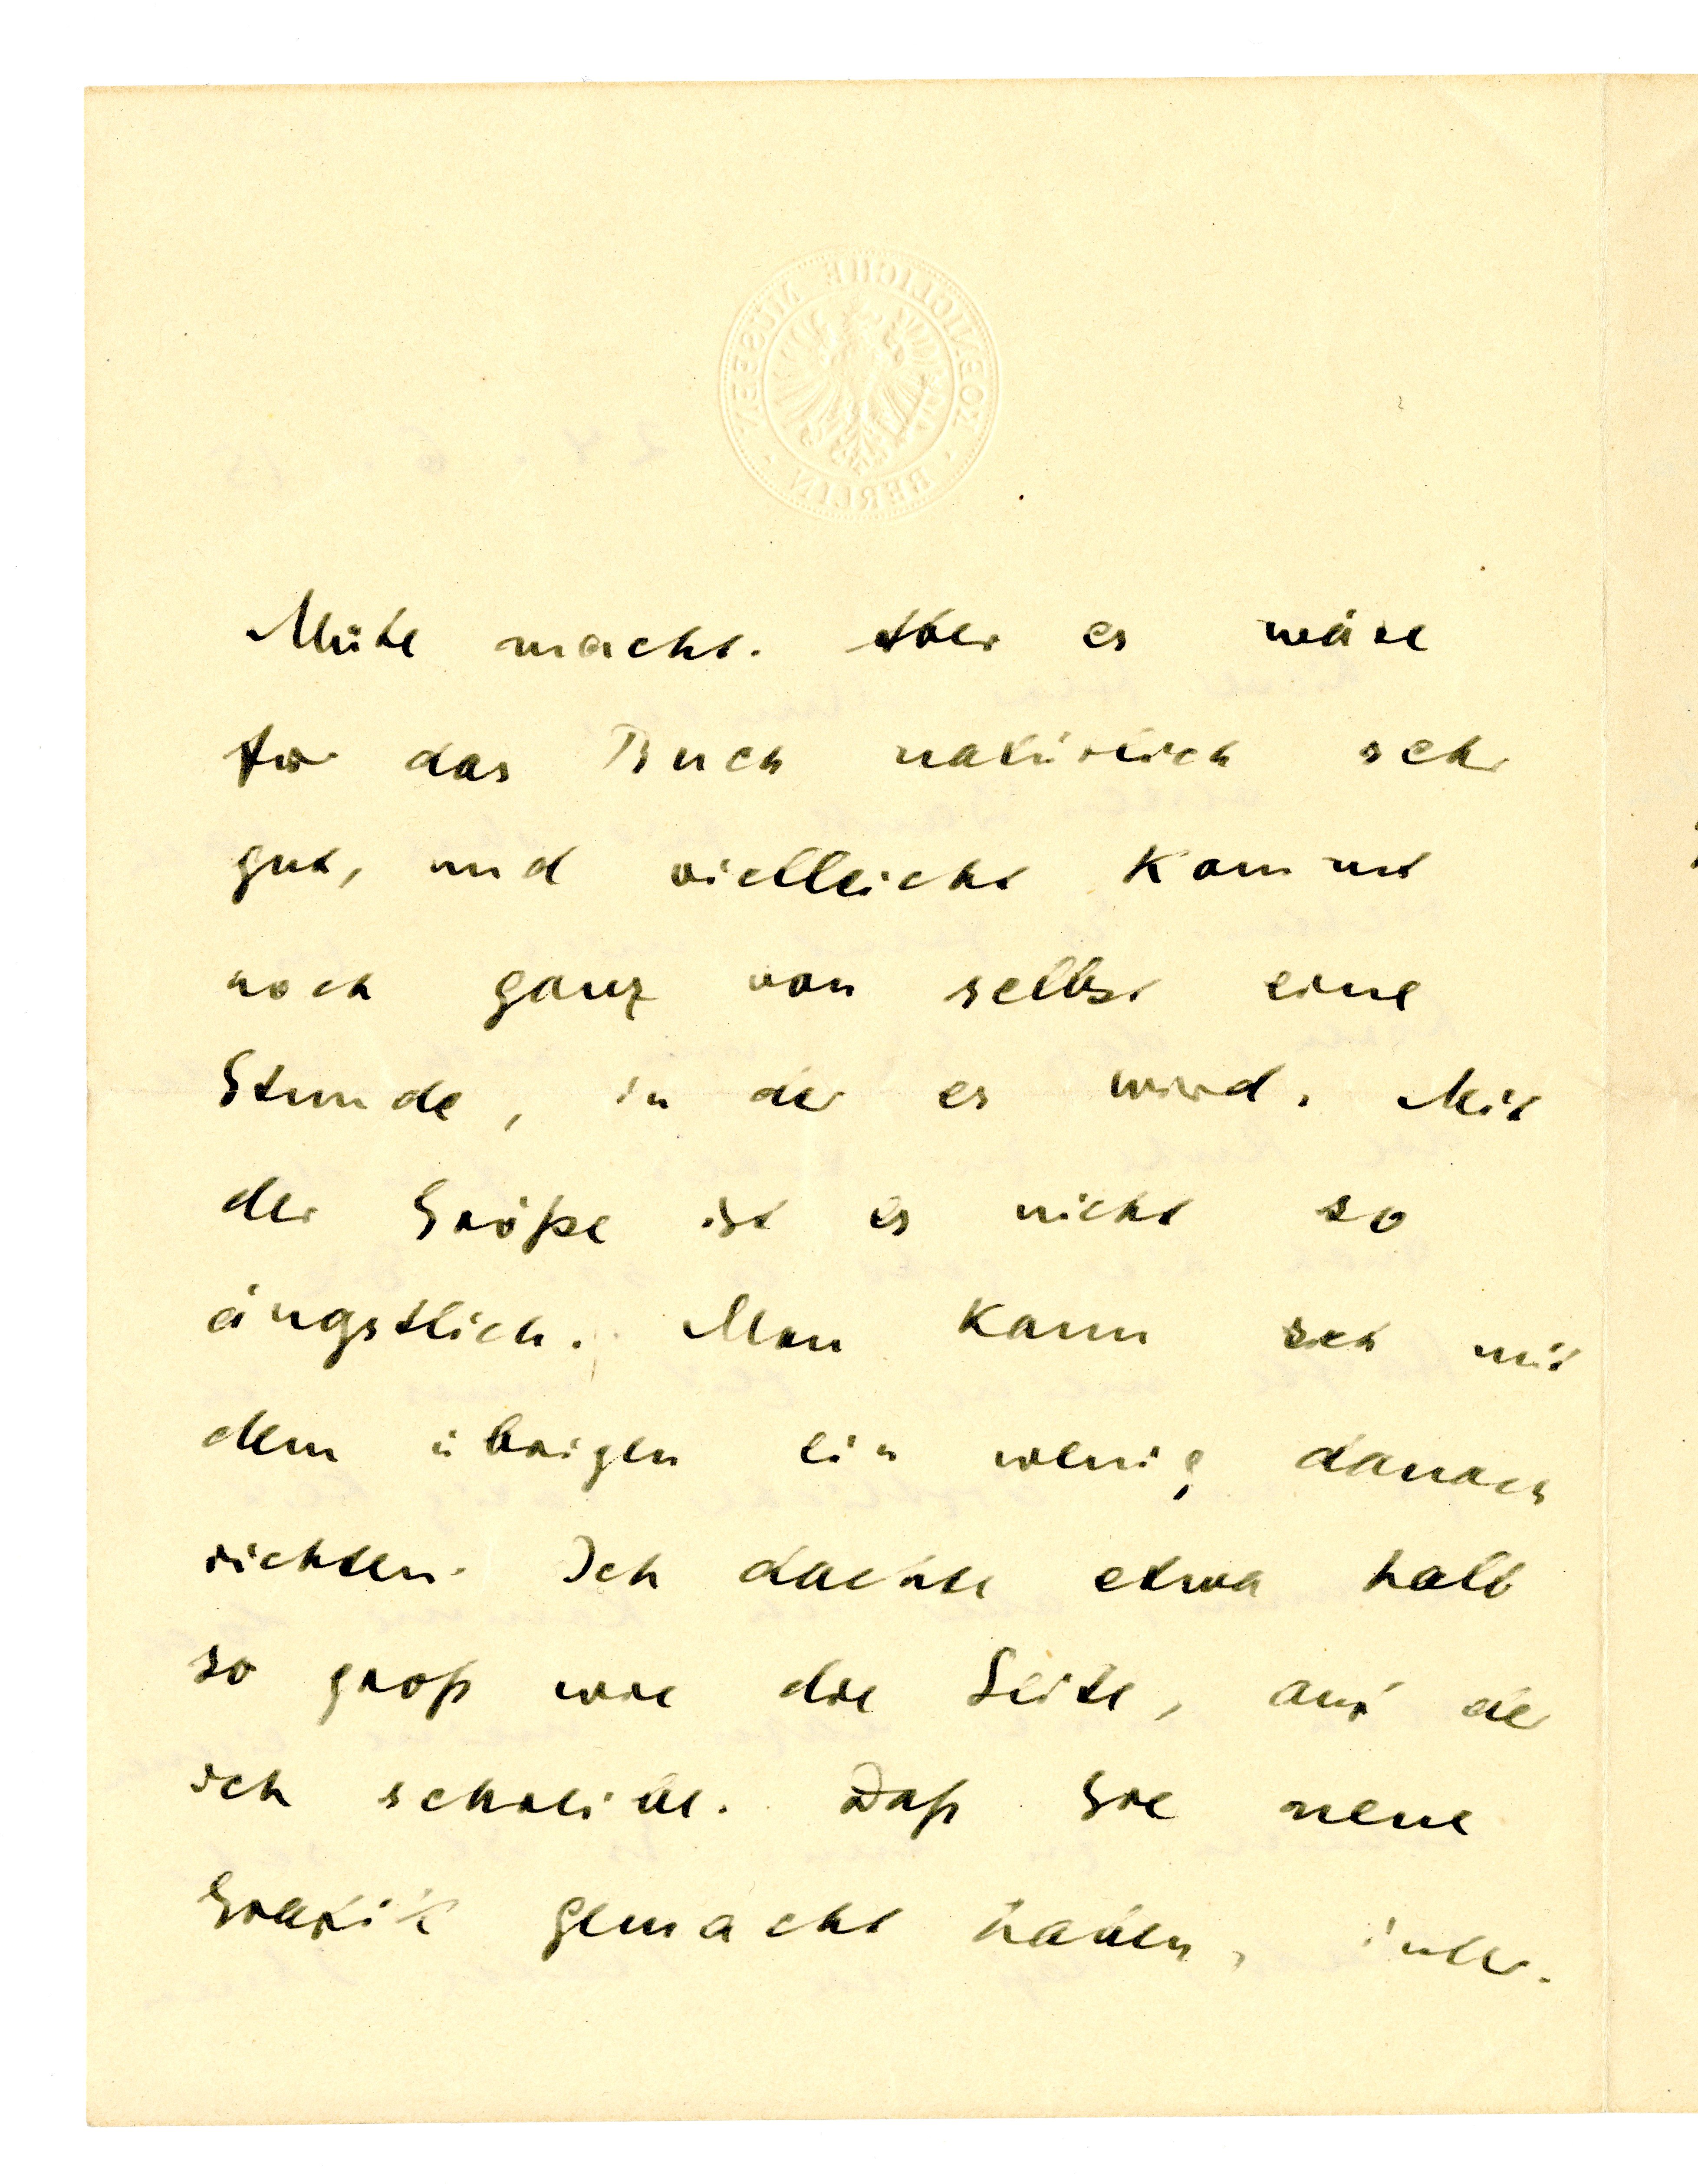 KOENIGLICHE MUSEEN
BERLIN
24. 6. 15
Mühe macht. Aber es wäre
für das Buch natürlich sehr
gut, und vielleicht kommt
noch ganz von selbst eine
Stunde, in der es wird. Mit
der Größe ist es nicht so
ängstlich. Man kann sich mit
dem übrigen ein wenig danach
richten. Ich dachte etwa halb
so groß wie die Seite, auf der
ich schreibe. Daß Sie neue
Grafik gemacht haben, inter-